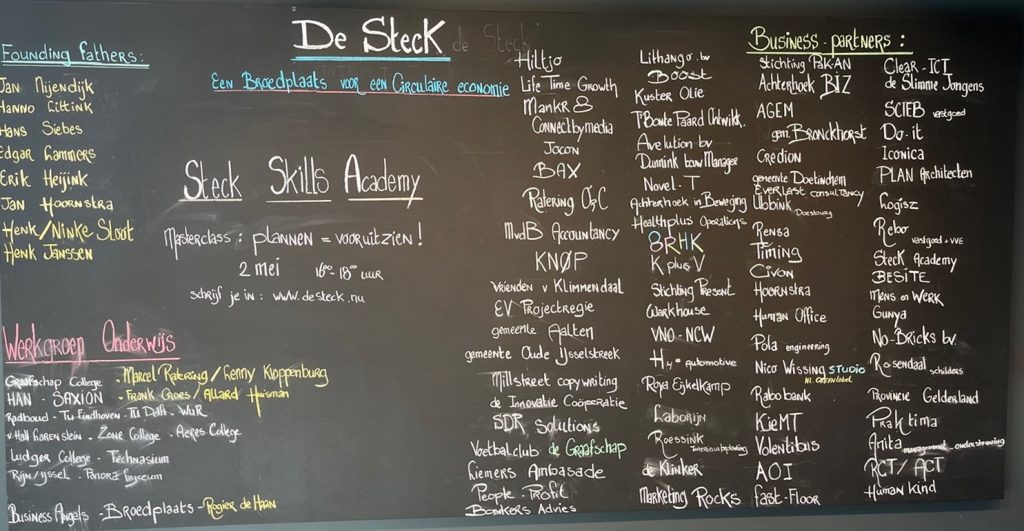 De Steck de Steck
Een Broedplaats voor een Circulaire economie
Founding fathers:
Jan Nijendijk
Hanno Cittink
Hans Siebes
Edgar Lammers
Erik Heijink
Jan Hoornstra
Henk/Ninke Sloot
Henk Janssen
Steck Skills Academy
Masterclass: plannen = vooruitzien!
2 mei 16⁰⁰-18⁰⁰ uur
schrijf je in: www.desteck.nu
Werkgroep Onderwijs
Graafschap College - Marcel Ratering/Lenny Kloppenburg
HAN - SAXION - Frank Croes/Allard Huisman
Radboud - Tu-Eindhoven - TU Delft - WUR
v Hall Larenstein - Zone College - Aeres College
Ludger College - Technasium
Rijn/Yssel - Panora Lyceum
Business Angels - Broedplaats - Rogier de Haan
Hiltjo
Life Time Growth
Mankr8
Connectbymedia
Jocon
BAX
Ratering O&C
MvdB Accountancy
KNØP
Vrienden v Klimmendaal
EV Projectregie
gemeente Aalten
gemeente Oude IJsselstreek
Millstreet copywriting
de Innovatie Coöperatie
SDR Solutions
Voetbalclub de Graafschap
Liemers Ambasade
People-Profit
Bonkers Advies
Lithango.bv
Boost
Kuster Olie
T'Bonte Paard Ontwikk.
Avelution bv
Dunnink bouw Manager
Novel-T
Achterhoek in Beweging
Healthplus Operations
BRHK
K plus V
Stichting Present
Warkhouse
VNO-NCW
H4-automotive
Royal Eijkelkamp
Laborijn
Roessink
de Klinker
Marketing Rocks
Business-partners:
Stichting
Achterhoek BIZ
AGEM
gem Bronckhorst
Credion
gemeente Doetinchem
Everlast consultancy
Ubbink Doesburg
Rensa
Timing
Civon
Hoornstra
Human Office
Pola engineering
Nico Wissing STUDIO
Rabobank
KieMT
Volentibus
AOI
Fast-Floor
Clear-ICT
de Slimme Jongens
SCIEB vastgoed
Do-it
Iconica
PLAN Architecten
Logisz
Rebo vastgoed + VVE
Steck Academy
BESITE
Mens en Werk
Gunya
No-Bricks bv
Rosendaal schilders
Provincie Gelderland
Praktima
Anita management-ondersteuning
RCT/ACT
Human Kind